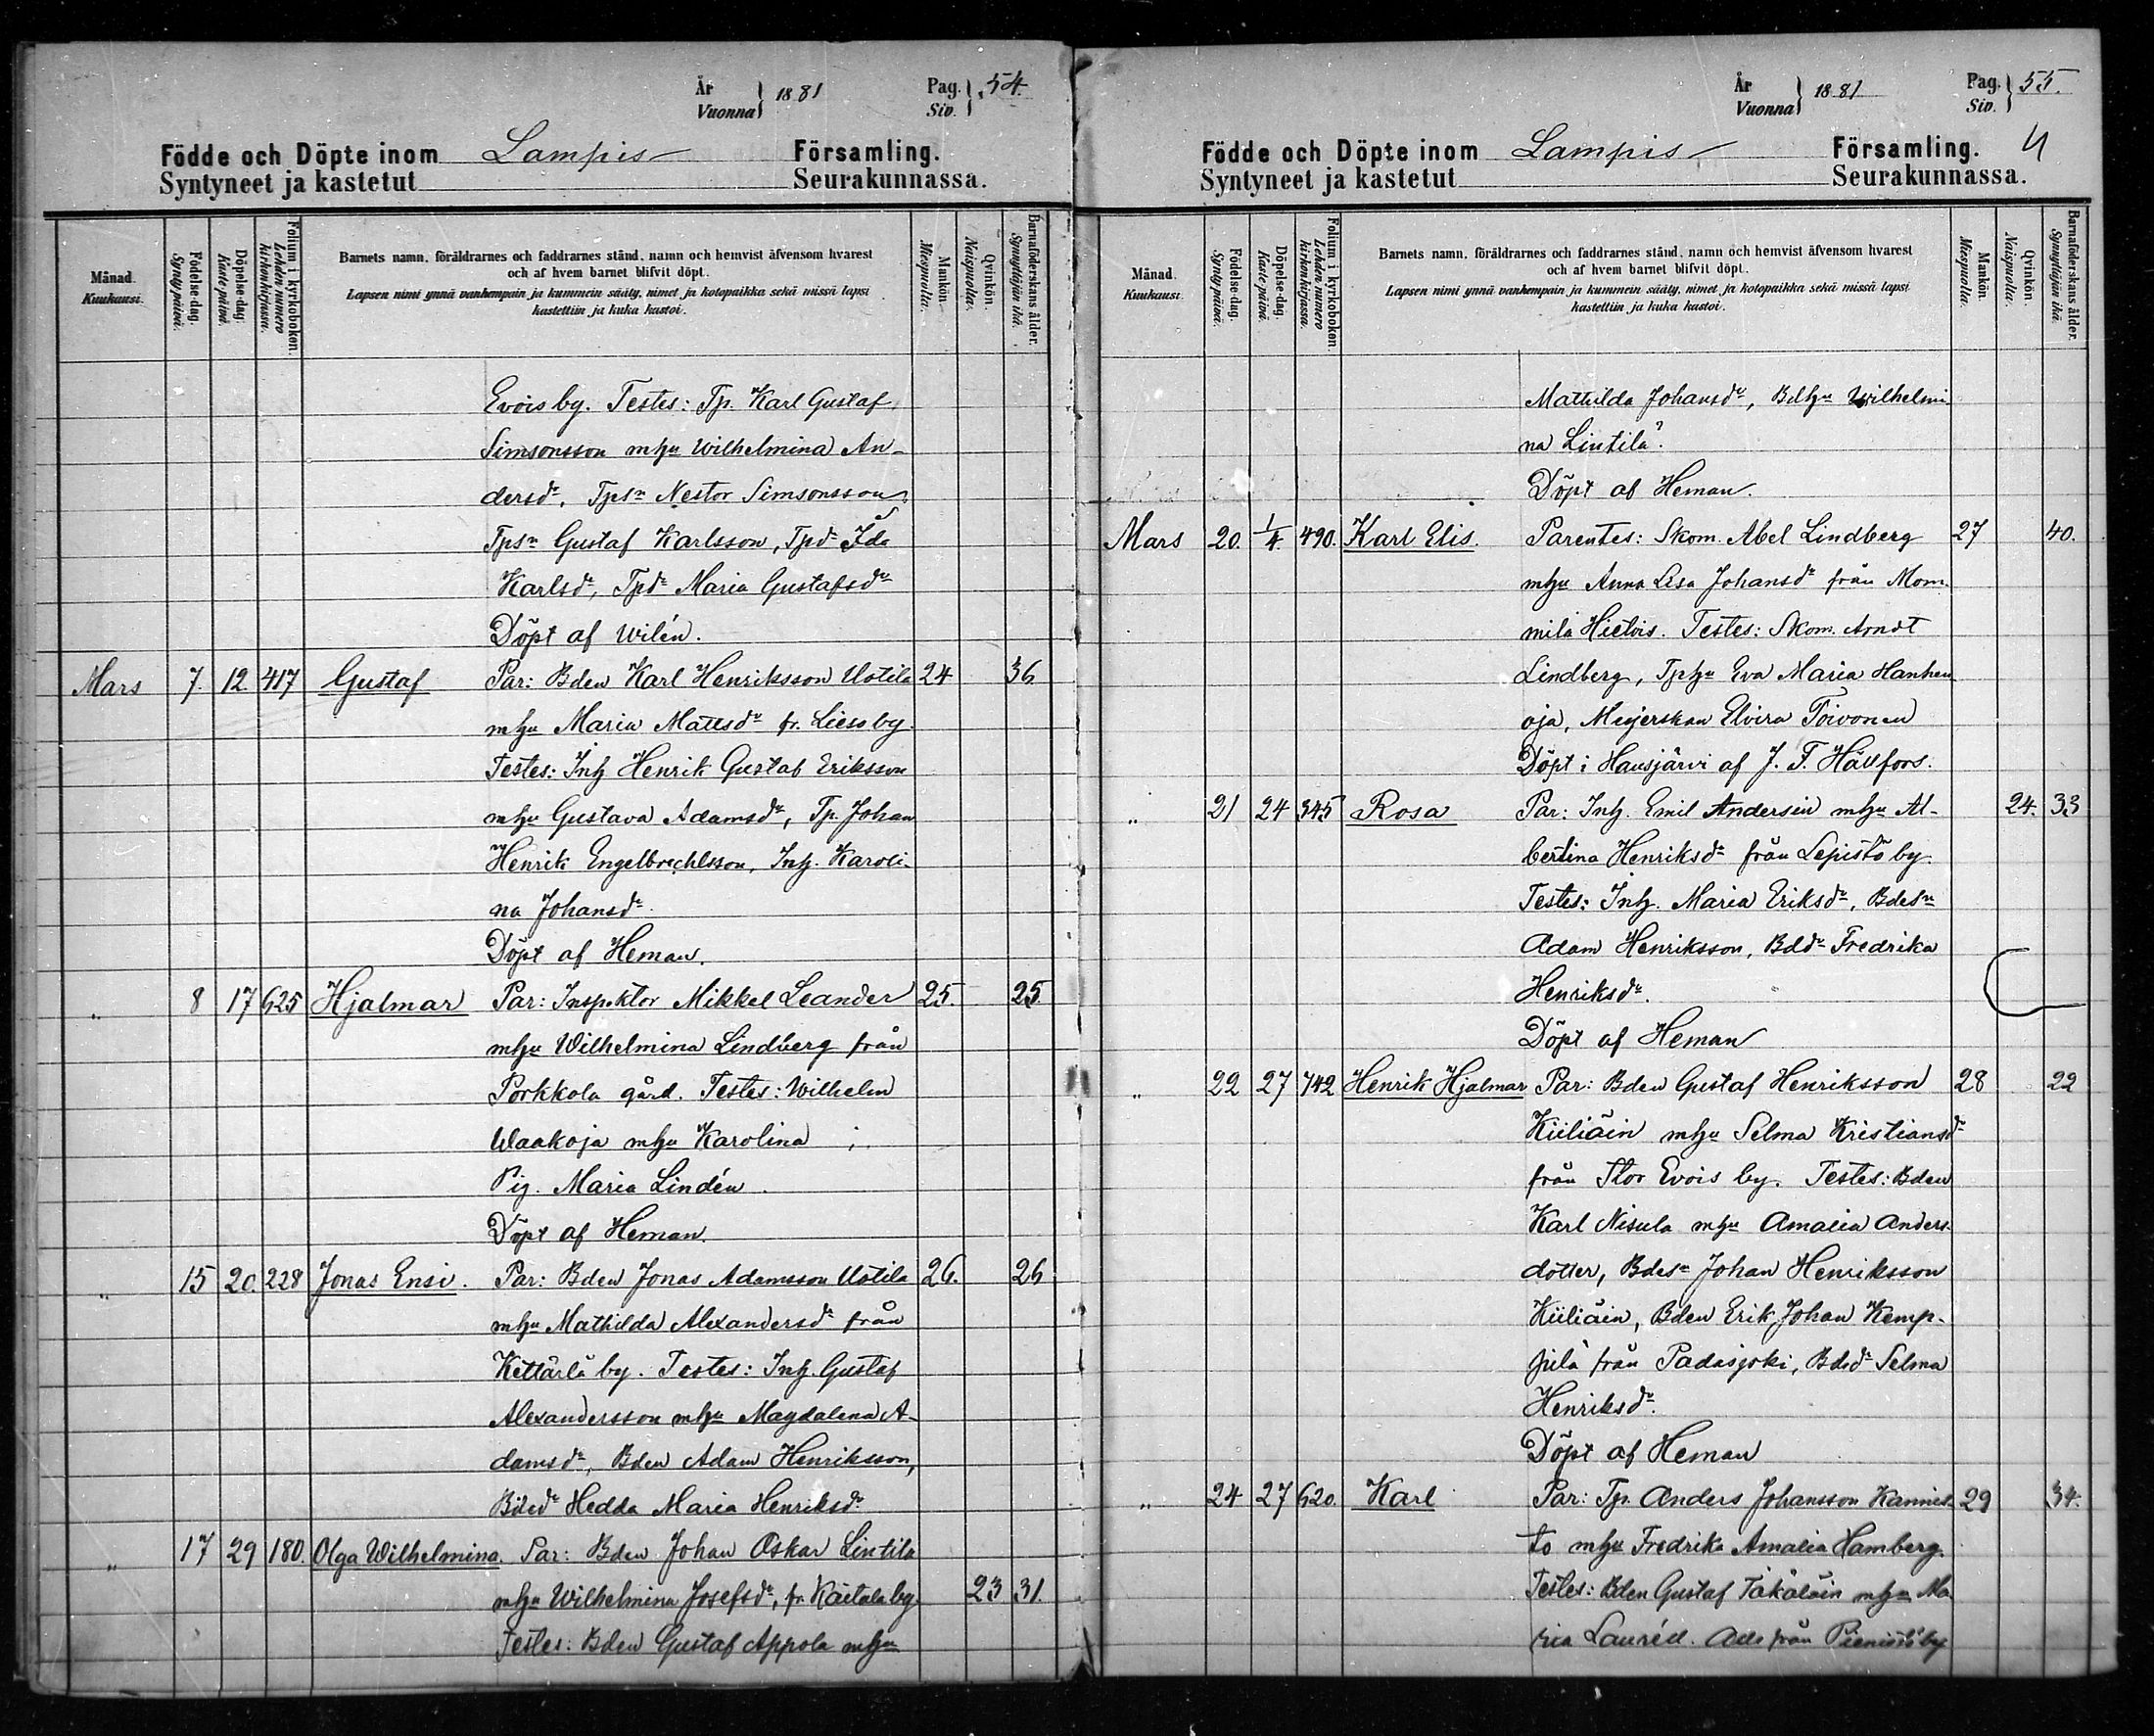 År
Vuonna } 1881
Pag.
Siv. } 54.
Födde och Döpte inom Lampis Församling.
Syntyneet ja kastetut Seurakunnassa.
Månad. Kuukausi.
Födelse-dag. Synty-päivä.
Döpelse-dag. Kaste-päivä.
Folium i kyrkoboken. Lehden numero kirkonkirjassa.
Barnets namn, föräldrarnes och faddrarnes stånd, namn och hemvist äfvensom hvarest
och af hvem barnet blifvit döpt.
Lapsen nimi ynnä vanhempain ja kummein sääty, nimet ja kotopaikka sekä missä lapsi
kastettiin ja kuka kastoi.
Mankön. Miespuolia.
Qvinkön. Naispuolia.
Barnaföderskans ålder. Synnyttäjän ikä.
Evois by. Testes: Tp. Karl Gustaf
Simsonsson mhu Wilhelmina An-
dersdr, Tpsn Nestor Simsonsson,
Tpsn Gustaf Karlsson, Tpdr Ida
Karlsdr, Tpdr Maria Gustafsdr
Döpt af Wilén.
Mars 7. 12. 417 Gustaf Par: Bden Karl Henriksson Uotila 24 36.
mhu Maria Mattsdr fr. Lieso by.
Testes: Inh Henrik Gustaf Eriksson
mhu Gustava Adamsdr, Tp. Johan
Henrik Engelbrechtsson, Inh. Karoli-
na Johansdr.
Döpt af Heman.
„ 8 17 625 Hjalmar Par: Inspektor Mikkel Leander 25. 25
mhu Wilhelmina Lindberg från
Porkkola gård. Testes: Wilhelm
Waakoja mhu Karolina ;
Pig. Maria Lindén.
Döpt af Heman.
„ 15 20. 228 Jonas Ensi. Par: Bden Jonas Adamsson Uotila 26. 26
mhu Mathilda Alexandersdr från
Kettärlä by. Testes: Inh. Gustaf
Alexandersson mhu Magdalena A-
damsdr, Bden Adam Henriksson,
Bdedr Hedda Maria Henriksdr
„ 17 29 180. Olga Wilhelmina. Par: Bden Johan Oskar Lintila
mhu Wilhelmina Josefsdr, fr. Kaitala by. 23 31.
Testes: Bden Gustaf Appola mhu
År
Vuonna } 1881
Pag.
Siv. } 55.
Födde och Döpte inom Lampis Församling.
Syntyneet ja kastetut Seurakunnassa.
Månad. Kuukausi.
Födelse-dag. Synty-päivä.
Döpelse-dag. Kaste-päivä.
Folium i kyrkoboken. Lehden numero kirkonkirjassa.
Barnets namn, föräldrarnes och faddrarnes stånd, namn och hemvist äfvensom hvarest
och af hvem barnet blifvit döpt.
Lapsen nimi ynnä vanhempain ja kummein sääty, nimet ja kotopaikka sekä missä lapsi
kastettiin ja kuka kastoi.
Mankön. Miespuolia.
Qvinkön. Naispuolia.
Barnaföderskans ålder. Synnyttäjän ikä.
Mathilda Johansdr, Bdhu Wilhelmi-
na Lintila.
Döpt af Heman.
Mars 20. 1/4. 490. Karl Elis. Parentes: Skom. Abel Lindberg 27 40.
mhu Anna Lisa Johansdr från Mom-
mila Hietois. Testes: Skom. Arndt
Lindberg, Tphu Eva Maria Hanhen
oja, Mejerskan Elvira Toivonen
Döpt i Hausjärvi af J. F. Hällfors.
„ 21 24 345 Rosa Par: Inh. Emil Andersin mhu Al- 24. 33
bertina Henriksdr från Lepistö by.
Testes: Inh. Maria Eriksdr, Bdesn
Adam Henriksson, Bddr Fredrika
Henriksdr.
Döpt af Heman
„ 22 27 742 Henrik Hjalmar Par: Bden Gustaf Henriksson 28 22
Kiiliäin mhu Selma Kristiansdr
från Stor Evois by. Testes: Bden
Karl Nisula mhu Amalia Anders-
dotter, Bdesn Johan Henriksson
Kiiliäin, Bden Erik Johan Kemp-
pilä från Padasjoki, Bdsdr Selma
Henriksdr.
Döpt af Heman
„ 24 27 620. Karl Par: Tp. Anders Johansson Kannis- 29 34.
to mhu Fredrika Amalia Hamberg.
Testes: Bden Gustaf Täkäläin mhu Ma
ria Lauréll. Alla från Pienistö by